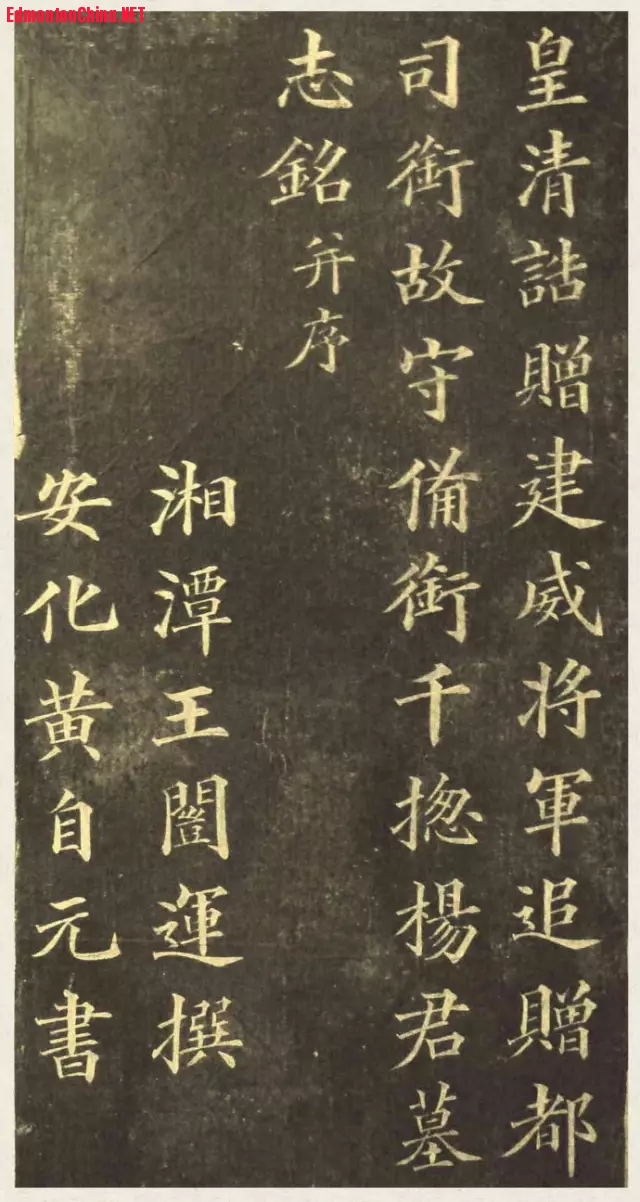 EdmontonChina.NET
皇清誥贈建威將軍追贈都
司銜故守備銜千揔楊君墓
志銘并序
湘潭王闓運撰
安化黄自元書